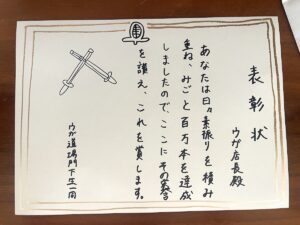 表彰状
ウガ店長殿
あなたは日々素振りを積み
重ね、みごと百万本を達成
しましたので、ここにその栄誉
を讃え、これを賞します。
ウガ道場門下生一同